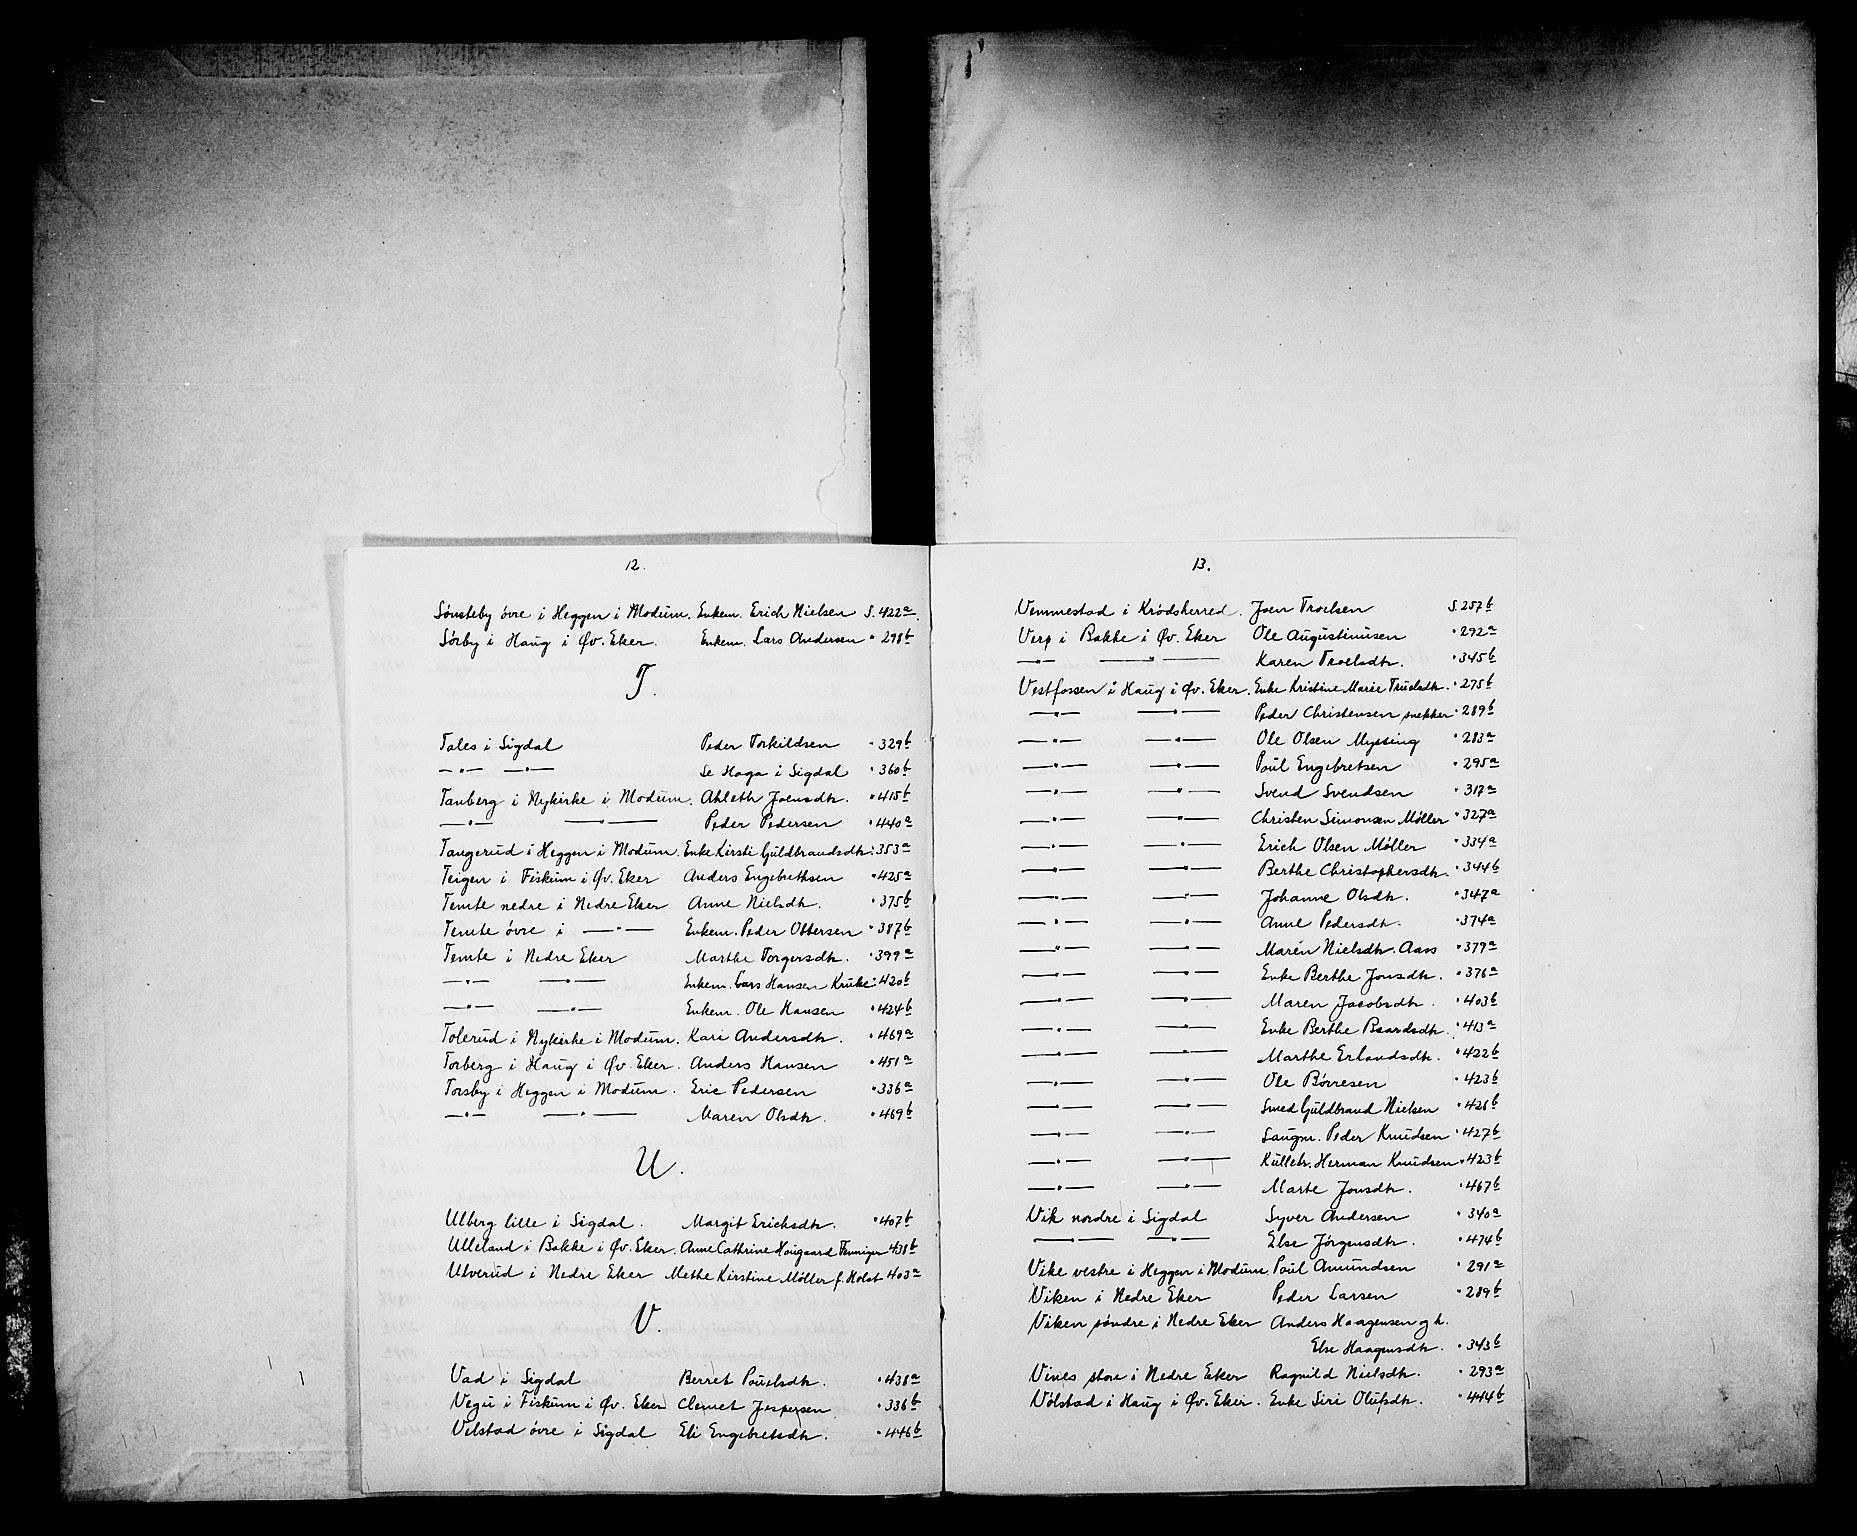 12.
Sønsteby øvre i Heggen i Modum. Enkem. Erich Nielsen S. 422a
Sørby i Haug i Øv. Eker. Enkem. Lars Andersen " 298b
T.
Tales i Sigdal Peder Torkildsen " 329b
—"— —"— Se Haga i Sigdal " 360b
Tanberg i Nykirke i Modum. Ahleth Joensdtr. " 415b
—"— —"— Peder Pedersen " 440a
Tangerud i Heggen i Modum. Enke Kirsti Guldbrandsdtr " 353a
Teigen i Fiskum i Øv. Eker Anders Engebrethsen " 425a
Temte nedre i Nedre Eker Anne Nielsdtr. " 375b
Temte øvre i —"— Enkem. Peder Ottersen " 387b
Temte i Nedre Eker Marthe Torgersdtr. " 399a
—"— —"— Enkem. Lars Hansen Kruke " 420b
—"— —"— Enkem. Ole Hansen " 424b
Tolerud i Nykirke i Modum. Kari Andersdtr. " 469a
Torberg i Haug i Øv. Eker. Anders Hansen " 451a
Torsby i Heggen i Modum. Eric Pedersen " 336a
—"— —"— Maren Olsdtr. " 469b
U.
Ulberg lille i Sigdal. Margit Erichsdtr. " 407b
Ulleland i Bakke i Øv. Eker. Anne Cathrine Hougaard 438b
Ulverud i Nedre Eker Methe Kirstine Møller f. Holst 403a
V.
Vad i Sigdal Berret Pouelsdtr. " 438a
Vegu i Fiskum i Øv. Eker Clemet Jespersen " 336b
Velstad øvre i Sigdal Eli Engebretsdtr. " 446b
13.
Vemmestad i Krødsherred. Joen Troelsen S. 257b
Verp i Bakke i Øv. Eker Ole Augustinusen " 292a
—"— —"— Karen Troelsdtr. " 345b
Vestfossen i Haug i Øv. Eker. Enke Kristine Marie Truelsdtr. " 275b
—"— —"— Peder Christensen snekker " 289b
—"— —"— Ole Olsen Myssing " 283a
—"— —"— Poul Engebretsen " 295a
—"— —"— Svend Svendsen " 317a
—"— —"— Christen Simonsen Møller " 327a
—"— —"— Erich Olsen Møller " 334a
—"— —"— Berthe Christophersdtr. " 344b
—"— —"— Johanne Olsdtr. " 347a
—"— —"— Anne Pedersdtr. " 374a
—"— —"— Maren Nielsdtr. Aass " 379a
—"— —"— Enke Berthe Jonsdtr. " 376a
—"— —"— Maren Jacobsdtr. " 403b
—"— —"— Enke Berthe Baardsdtr. " 413a
—"— —"— Marthe Erlandsdtr. " 422b
—"— —"— Ole Børresen " 423b
—"— —"— Smed Guldbrand Nielsen " 426b
—"— —"— Saugm. Peder Knudsen " 427b
—"— —"— Kullebr. Herman Knudsen " 423b
—"— —"— Marte Jonsdtr. " 467b
Vik nordre i Sigdal Syver Andersen " 340a
—"— —"— Else Jørgensdtr. " 474b
Vike vestre i Heggen i Modum. Poul Amundsen " 291a
Viken i Nedre Eker Peder Larsen " 289b
Viken søndre i Nedre Eker Anders Haagensen og h.
Else Haagensdtr. " 343b
Vines store i Nedre Eker Ragnild Nielsdtr. " 293a
Vølstad i Haug i Øv. Eker. Enke Siri Olufsdtr. " 444b